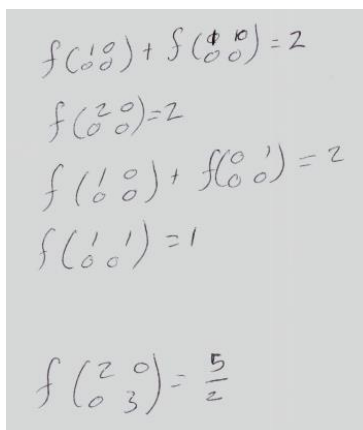 f(1 0 0 0) + f(1 0 0 0) = 2
f(2 0 0 0) = 2
f(1 0 0 0) + f(0 1 0 0) = 2
f(1 1 0 0) = 1
f(2 0 0 3) = 5/2